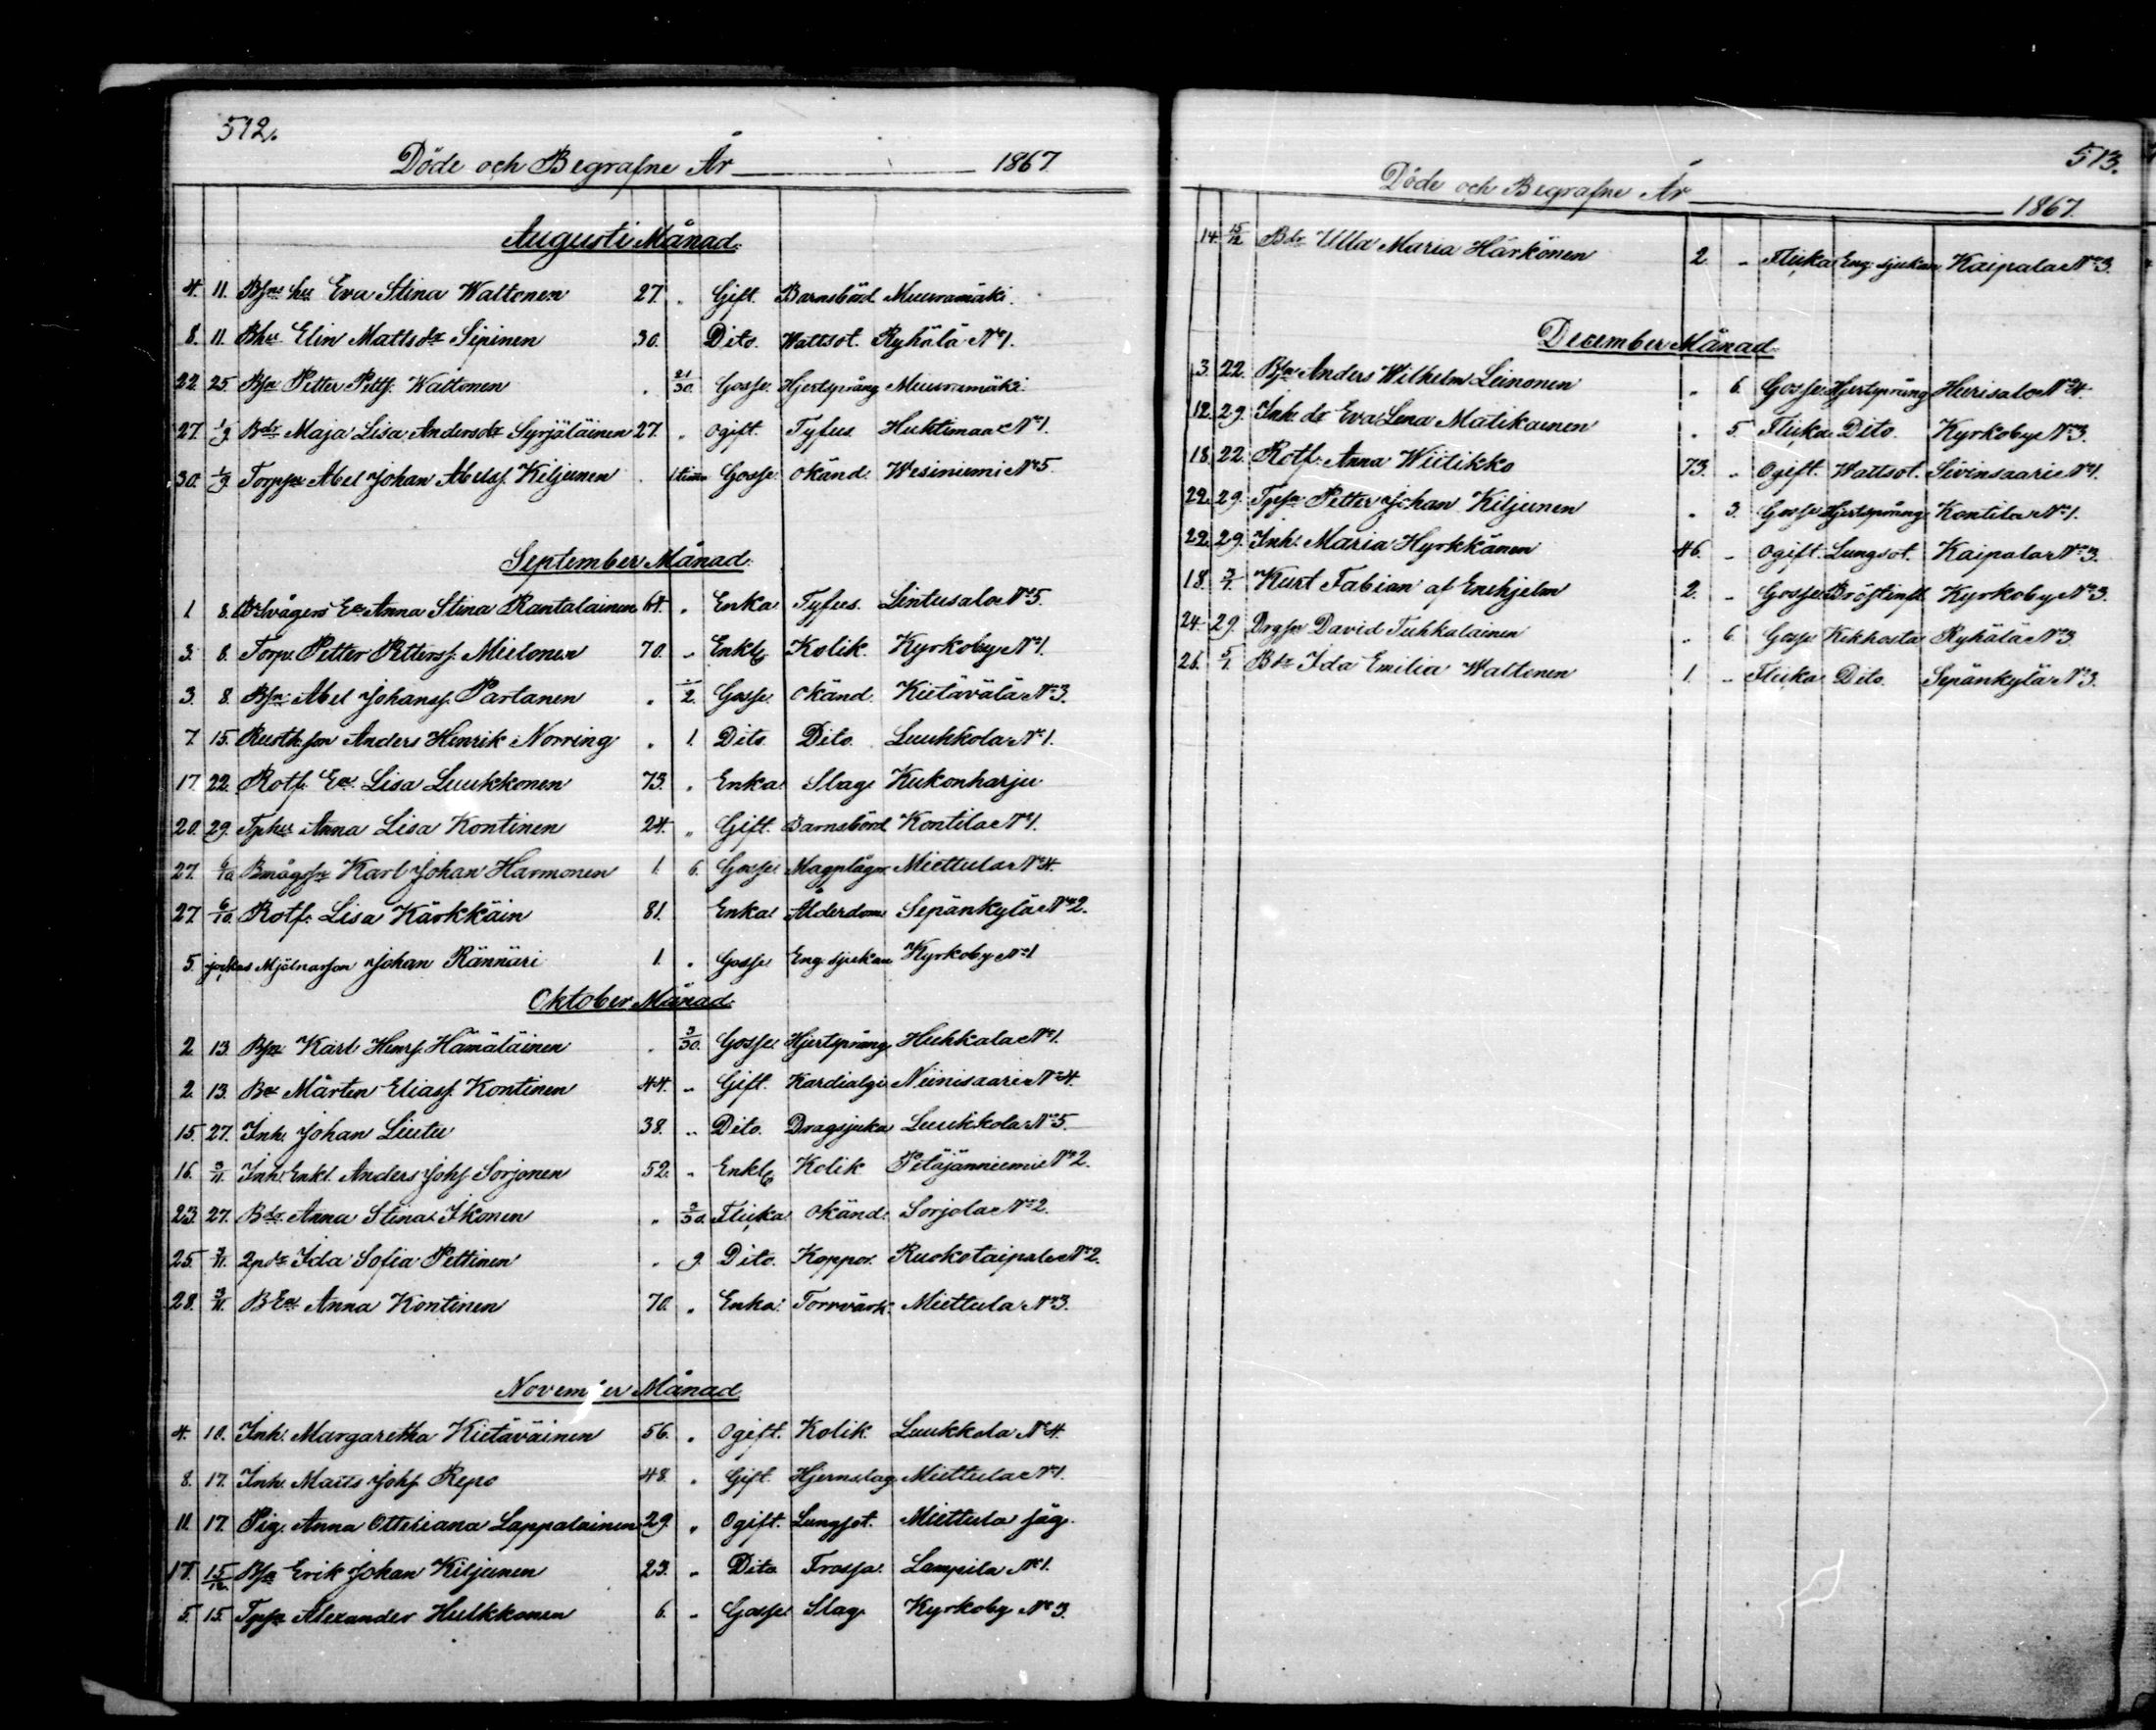 512.
Döde och Begrafne År 1867
Augusti Månad.
4. 11. Bfru hu Eva Stina Waltonen 27. " Gift. Barnsbörd Muuramäki.
8. 11. Bhu Elin Mattsdr Sipinen 30. Dito. Wattsot. Ryhälä No 1.
22. 25. Bsn Petter Petts. Waltonen " 21/30. Gosse. Hjertsprång Muuramäki.
27. 1/9 Bdr Maja Lisa Andersdr Syrjäläinen 27. " Ogift. Tyfus Huhtimaa No 1.
30. 1/9 Torpsn Abel Johan Abelss. Kiljunen 1 tima Gosse. Okänd. Wesiniemi No 5.
September Månad.
1 8. Anna Stina Rantalainen 64. " Enka Tyfus. Lintusalo No 5.
3. 8. Torp. Petter Petterss. Mielonen 70. " Enkl. Kolik. Kyrkoby No 1.
3. 8. Bsn Abel Johanss. Partanen " 1/2. Gosse. Okänd. Kietävälä No 3.
7. 15. Rusth. son Anders Henrik Norring " 1. Dito. Dito. Luukkola No 1.
17. 22. Rotf. Ea Lisa Luukkonen 73. " Enka Slag Kukonharju
20. 29. Tphu Anna Lisa Kontinen 24. " Gift. Barnsbörd Kontila No 1.
27. 6/10 Bmågsn Karl Johan Harmonen 1. 6. Gosse. Magplågor Miettula No 4.
27. 6/10. Rotf. Lisa Kärkkäin 81. Enka Ålderdom Sepänkylä No 2.
5. Mjölnarson Johan Rännäri 1. " Gosse Eng. sjukan Kyrkoby No 1
Oktober Månad.
2. 13. Bsn Karl Henrs. Hämäläinen " 3/30. Gosse. Hjertsprång Huhkala No 1.
2. 13. Be Mårten Eliass. Kontinen 44. " Gift. Kardialgi Niinisaari No 4.
15. 27. Inh. Johan Liutu 38. " Dito. Dragsjuka Luukkola No 5.
16. 3/11. Inh. Enkl. Anders Johs Sorjonen 52. " Enkl. Kolik. Petäjänniemi No 2.
23. 27. Bdr. Anna Stina Ikonen " 3/30. Flicka Okänd. Sorjola No 2.
25. 3/11. Ida Sofia Pettinen " 9. Dito. Koppor. Ruokotaipale No 2.
28. 3/11. BEa Anna Kontinen 70. " Enka. Torrvärk. Miettula No 3.
November Månad.
4. 10. Inh. Margaretha Kietäväinen 56. " Ogift. Kolik. Luukkola No 4.
8. 17. Inh. Matts Johs Repo 48. " Gift. Hjernslag Miettula No 1.
11. 17. Pig. Anna Ottiliana Lappalainen 29. " Ogift. Lungsot. Miettula såg.
17. 15/12. Bsn Erik Johan Kiljunen 23. " Dito Frossa. Lampila No 1.
5. 15. Tpsn Alexander Hulkkonen 6. " Gosse Slag Kyrkoby No 3.
513.
Döde och Begrafne År 1867.
14. 15/12 Bdr Ulla Maria Härkönen 2. " Flicka Eng. sjukan Kaipala No 3.
December Månad.
3. 22. Bsn Anders Wilhelm Leinonen " 6. Gosse Hjertsprång Hurisalo No 4.
12. 29. Inh. dr Eva Lena Matikainen " 5. Flicka Dito. Kyrkoby No 3.
18. 22. Rotf. Anna Wiitikko 73. " Ogift. Wattsot. Sivinsaari No 1.
22. 29. Tpsn Petter Johan Kiljunen " 3. Gosse Hjertsprång Kontila No 1.
22. 29. Inh. Maria Hyrkkänen 46. " Ogift. Lungsot. Kaipala No 3.
18. 3/1. Kurt Fabian af Enehjelm 2. " Gosse Bröstinfl. Kyrkoby No 3.
24. 29. Drgsn David Tuhkalainen " 6. Gosse Kikhosta Ryhälä No 3.
26. 5/1 Bdr Ida Emilia Waltonen 1. " Flicka Dito. Sepänkylä No 3.